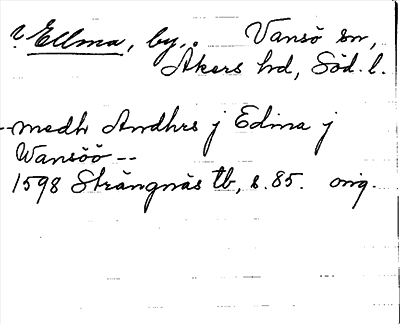 ? Ellma, by. Vansö sn,
Åkers hd, Söd. l.
--medh Andhrs j Edma j
Wansöö --
1598 Strängnäs tb, s. 85. orig.